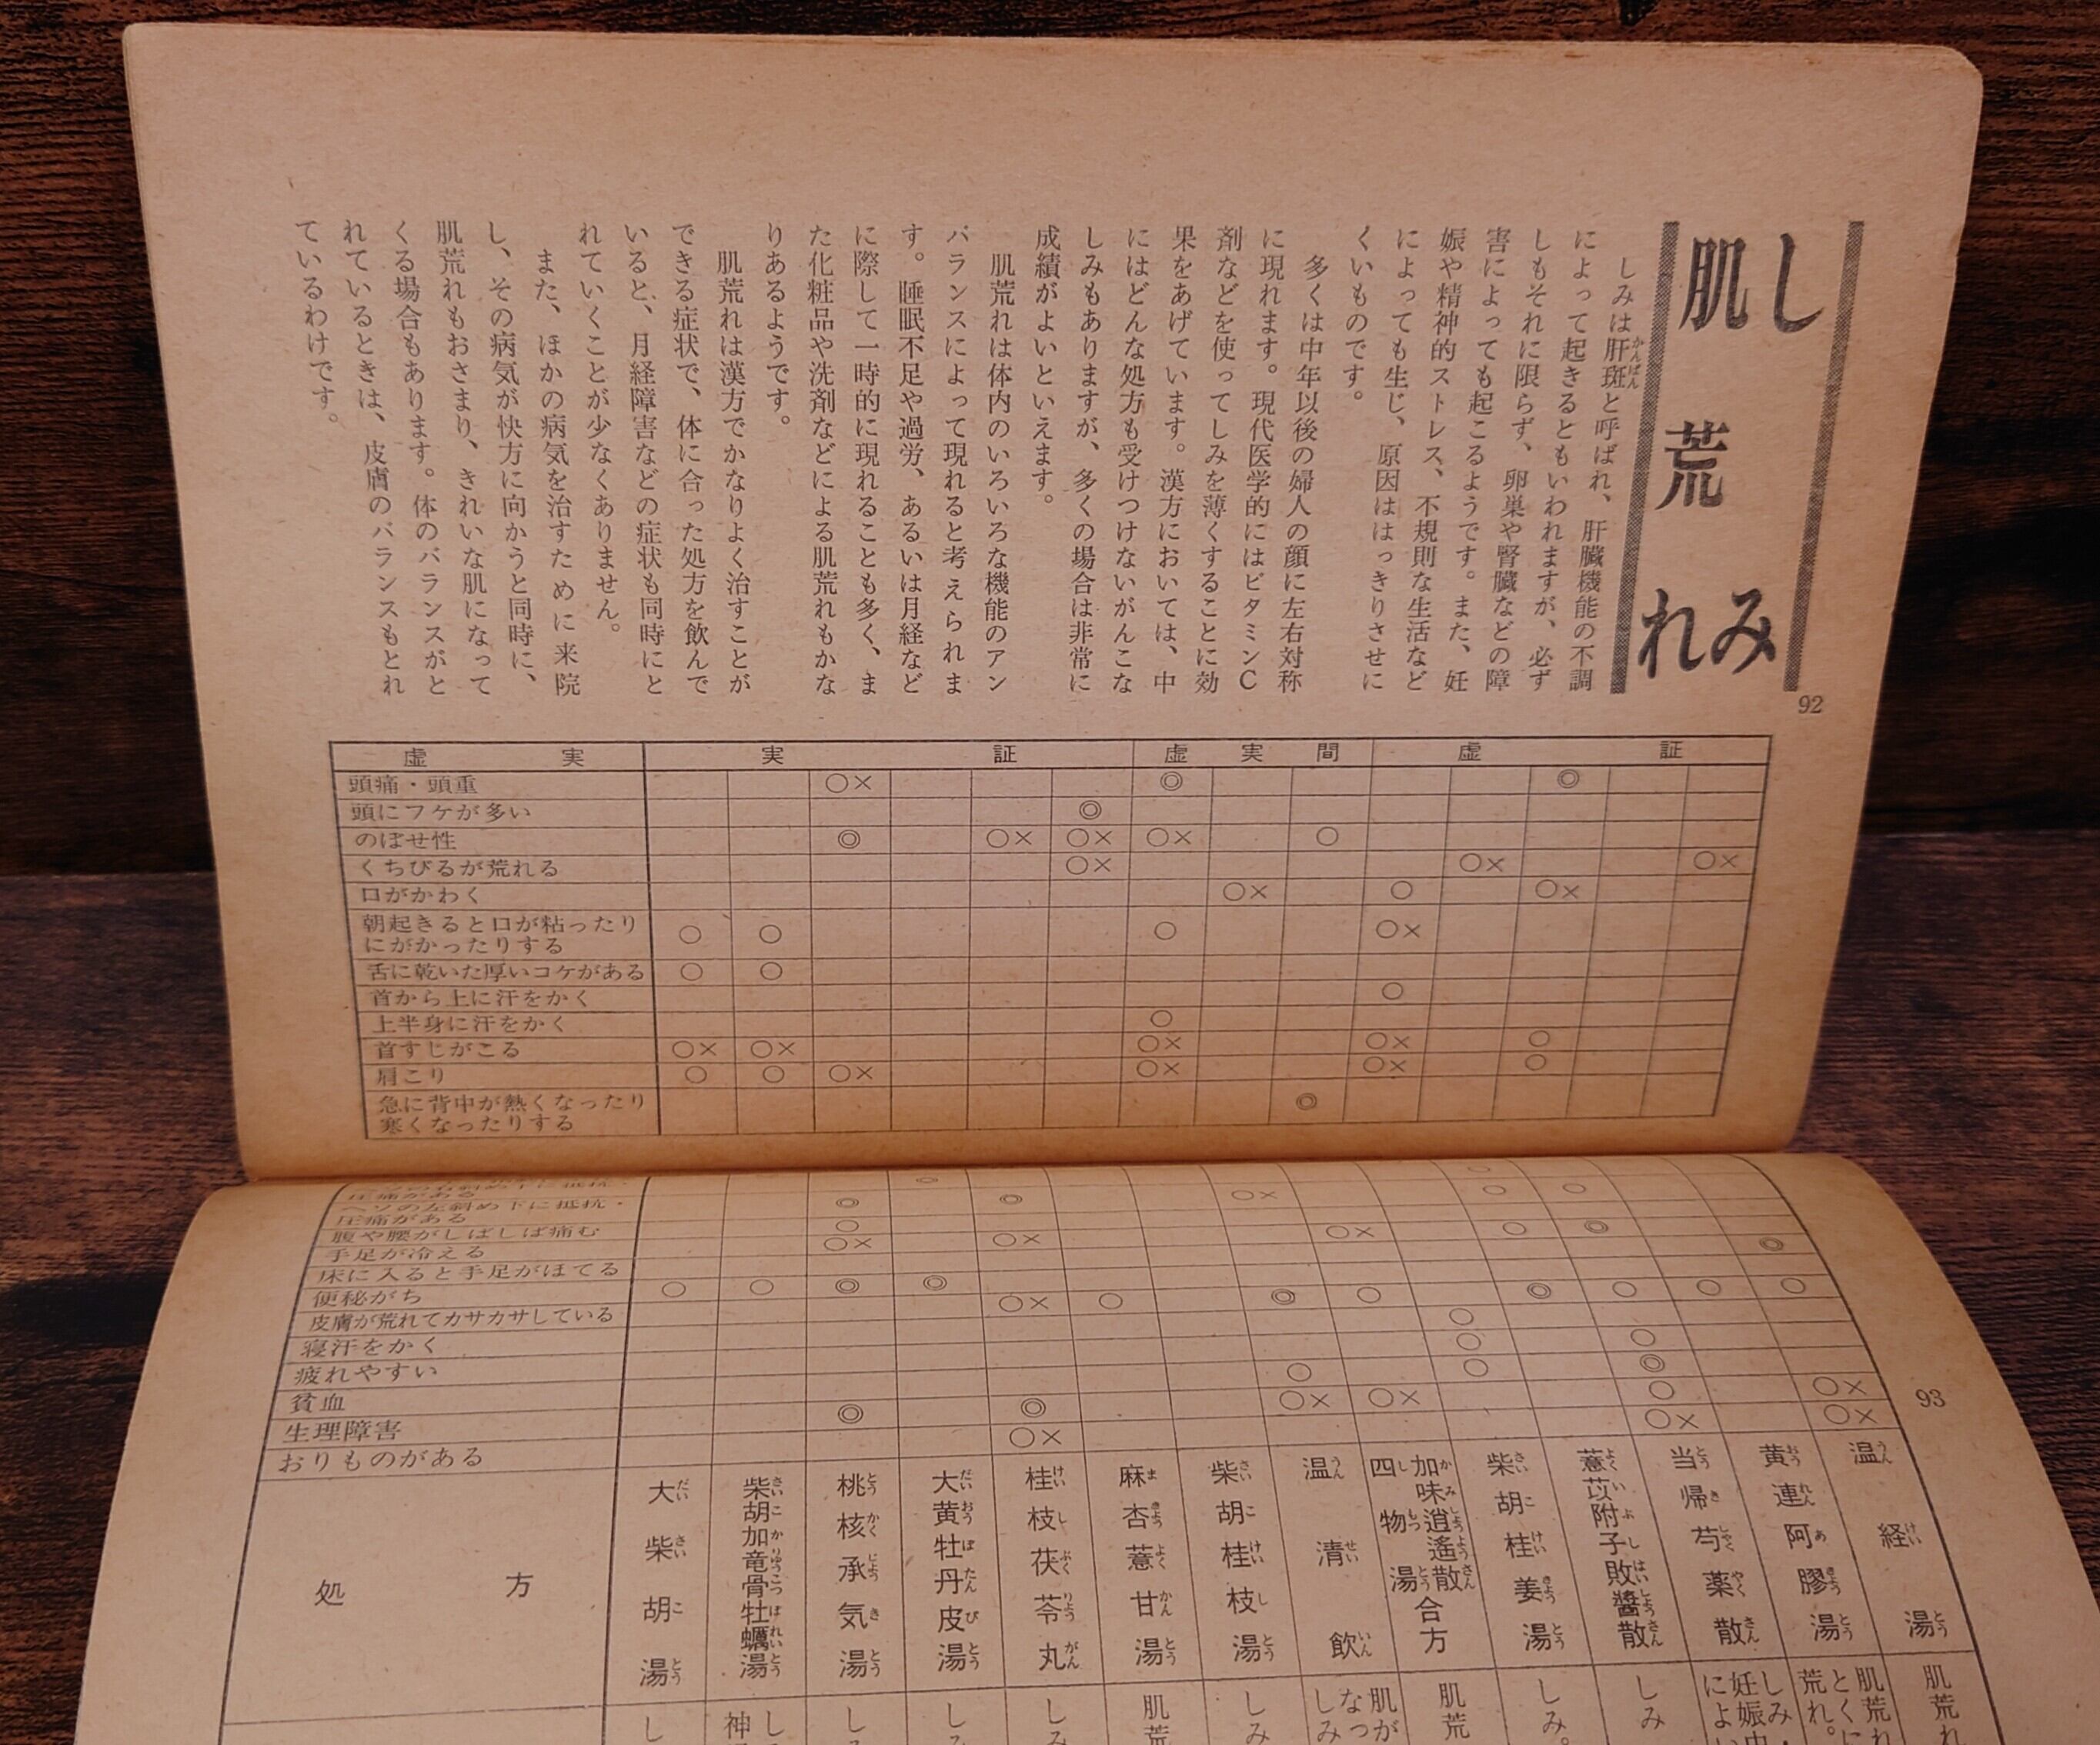 しみ
肌荒れ
92
しみは肝斑と呼ばれ、肝臓機能の不調
によって起きるともいわれますが、必ず
しもそれに限らず、卵巣や腎臓などの障
害によっても起こるようです。また、妊
娠や精神的ストレス、不規則な生活など
によっても生じ、原因ははっきりさせに
くいものです。
多くは中年以後の婦人の顔に左右対称
に現れます。現代医学的にはビタミンC
剤などを使ってしみを薄くすることに効
果をあげています。漢方においては、中
にはどんな処方も受けつけないがんこな
しみもありますが、多くの場合は非常に
成績がよいといえます。
肌荒れは体内のいろいろな機能のアン
バランスによって現れると考えられま
す。睡眠不足や過労、あるいは月経など
に際して一時的に現れることも多く、ま
た化粧品や洗剤などによる肌荒れもかな
りあるようです。
肌荒れは漢方でかなりよく治すことが
できる症状で、体に合った処方を飲んで
いると、月経障害などの症状も同時にと
れていくことが少なくありません。
また、ほかの病気を治すために来院
し、その病気が快方に向かうと同時に、
肌荒れもおさまり、きれいな肌になって
くる場合もあります。体のバランスがと
れているときは、皮膚のバランスもとれ
ているわけです。
虚実 実証 虚実間 虚証
頭痛・頭重 ○× ◎ ◎
頭にフケが多い ◎
のぼせ性 ◎ ○× ○× ○× ○
くちびるが荒れる ○× ○× ○×
口がかわく ○× ○ ○×
朝起きると口が粘ったり
にがかったりする ○ ○ ○ ○×
舌に乾いた厚いコケがある ○ ○
首から上に汗をかく ○
上半身に汗をかく ○
首すじがこる ○× ○× ○× ○× ○
肩こり ○ ○ ○× ○× ○× ○
急に背中が熱くなったり
寒くなったりする ◎
圧痛がある
ヘソの左斜め下に抵抗・
圧痛がある
腹や腰がしばしば痛む
手足が冷える
床に入ると手足がほてる
便秘がち
皮膚が荒れてカサカサしている
寝汗をかく
疲れやすい
貧血
生理障害
おりものがある
93
処方
大柴胡湯
柴胡加竜骨牡蠣湯
桃核承気湯
大黄牡丹皮湯
桂枝茯苓丸
麻杏薏甘湯
柴胡桂枝湯
温清飲
加味逍遙散合方
四物湯
柴胡桂姜湯
薏苡附子敗醬散
当帰芍薬散
黄連阿膠湯
温経湯
し
し
神
し
し
しみ
肌荒
しみ
肌が
なっ
しみ
肌荒
しみ。
しみ
しみ・
妊娠中
によい
肌荒れ
とくに
荒れ。
肌荒れ